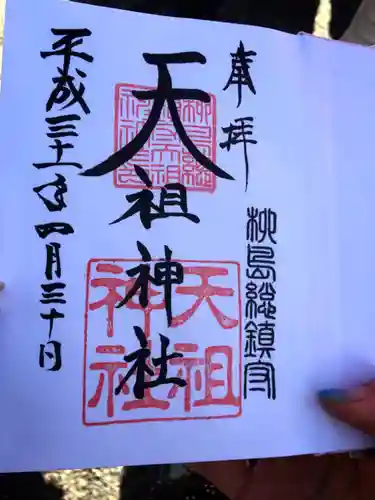 奉拝
柳島總鎮守
天祖神社
天祖
神社
平成三十一年四月三十日